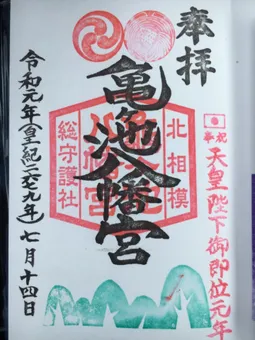 奉拝
奉祝
天皇陛下御即位元年
北相模
亀池八幡宮
総守護社
令和元年(皇紀二六七九年)七月十四日